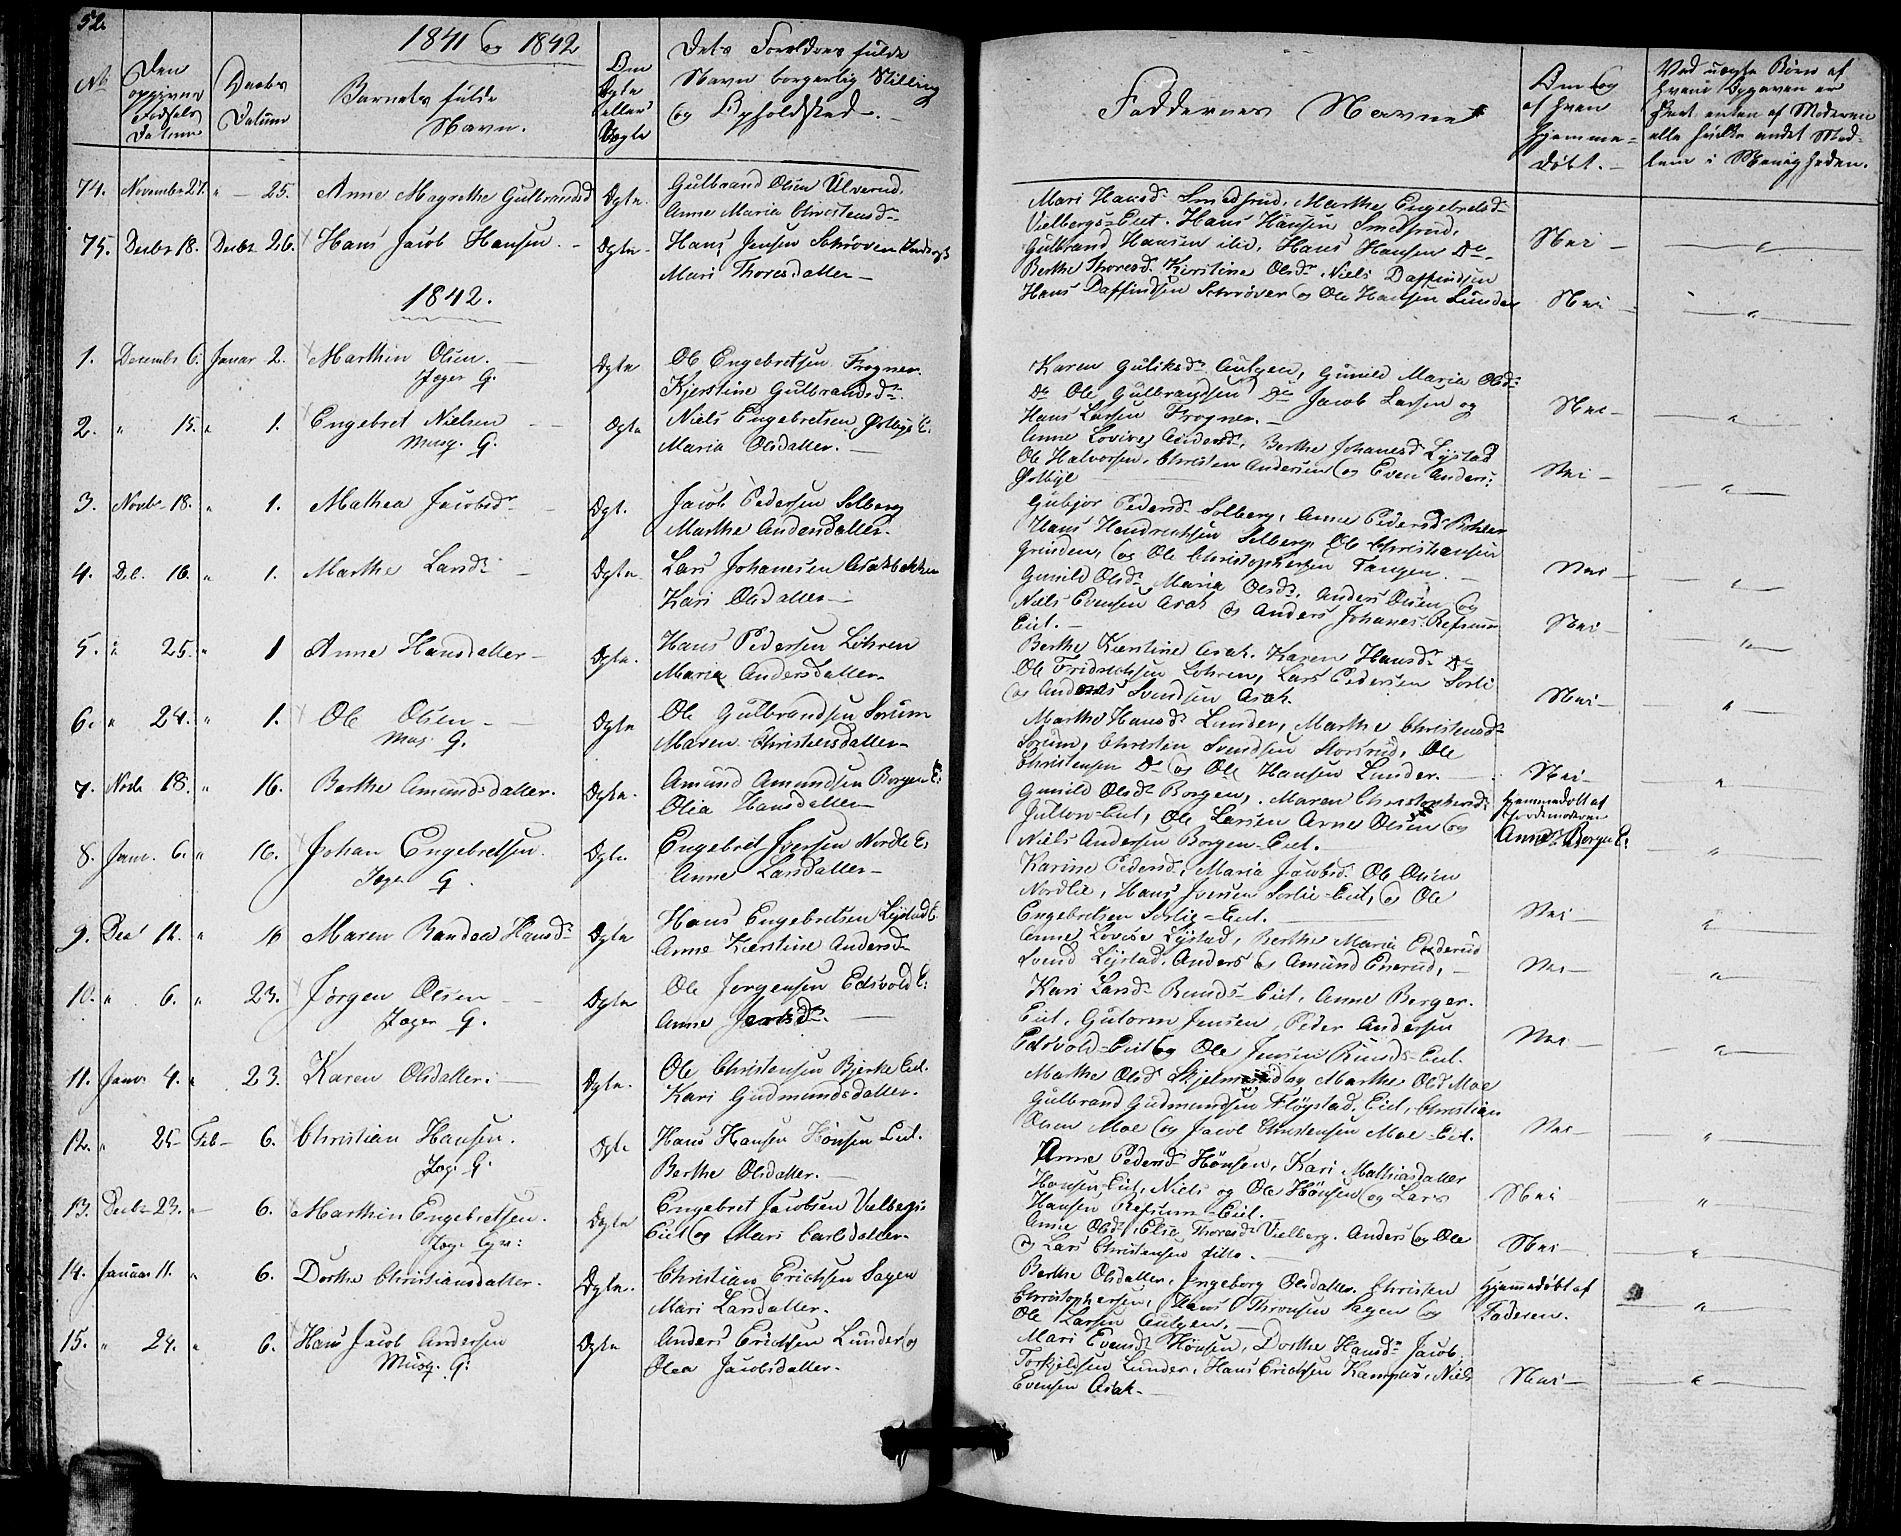 52.
1841 og 1842
No
Den opgivne Fødsels Datum
Daabs Datum
Barnets fulde Navn.
Om Ægte eller Uægte
Dets Foreldres fulde Navn borgerlig Stilling og Opholdsted.
Faddernes Navne
Om og af hvem hjemmedøbt.
Ved uægte Børn af hvem Opgaven er
74. Novembr 27. " 25. Anne Magrethe Gulbrandsd Ægte. Gulbrand Olsen Ulverud.
Anne Maria Christensd.
Mari Hansd. Smedsrud, Marthe Engebretsd.
Vielbergs-Eiet. Hans Hansen Smedsrud,
Gulbrand Hansen ibid, Hans Hansen Do. Nei "
75. Decbr 18. Decbr 26. Hans Jacob Hansen Ægte Hans Jensen Schrøver
Mari Thoresdatter
Berthe Thoresd. Kirstine Olsd. Niels Daffindsen
Hans Daffindsen Schrøver og Ole Hansen Lunder Nei "
1842.
1. Decembr 6. Januar 2. Marthin Olsen. Ægte Ole Engebretsen Frogner.
Jager G. Kjerstine Gulbrandsd.
Karen Guliksd. Gunild Maria Olsd.
Do Ole Gulbrandsen Do Jacob Larsen og
Hans Larsen Frogner. Nei "
2. " 15. " 1. Engebret Nielsen Ægte Niels Engebretsen Østbye E.
Musq. G. Maria Olsdatter.
Anne Lovise Andersd. Berthe Johanesd Lystad
Ole Halvorsen, Christen Andersen og Even Anders:
Østbye Nei "
3. Novbr 18. " 1. Mathea Jacobsd. Ægt. Jacob Pedersen Solberg
Marthe Andersdatter.
Gubjør Pedersd. Solberg, Anne Pedersd.
Hans Hendrichsen Solberg Ole Christiansen
Grinden, og Ole Christophersen Tangen. Nei "
4. Deb. 16. " 1. Marthe Larsd. Ægte Lars Johanesen Asakbakken
Kari Olsdatter
Gunild Olsd. Maria Olsd. Anders Olsen og
Niels Evensen Asak og Anders Johanes. Refsum
Eiet. Nei "
5. " 25. " 1 Anne Hansdatter Ægte. Hans Pedersen Løhren
Maria Andersdatter.
Berthe Kirstine Asak. Karen Hansd. Do
Ole Fridrichsen Løhren, Lars Pedersen Sorli
og Anders Svendsen Asak. Nei "
6. " 24. " 1. Ole Olsen Ægte Ole Gulbrandsen Sørum
Mus. G. Maren Christensdatter
Marthe Hansd. Lunder, Marthe Christensd.
Sørum, Christen Svendsen Storsrud, Ole
Christensen Do og Ole Hansen Lunder. Nei "
7. Novb 18. " 16. Berthe Amundsdatter. Ægte. Amund Amundsen Borgen E:
Olia Hansdatter
Gunild Olsd. Borgen, Maren Christophersd.
Jultom-Eiet, Ole Larsen Arne Olsen og
Niels Andersen Borgen-Eiet.
Hjemmedøbt af Jordemoderen
Anne Borgen E: "
8. Janr. 6. " 16. Johan Engebretsen. Ægte Engebret Iversen Nordli E:
Jager G. Anne Larsdatter
Karine Pedersd. Maria Jacobsd. Ole Olsen
Nordlie, Hans Iversen Sorlie-Eiet, og Ole
Engebretsen Sorlie-Eiet. Nei "
9. Decb 12. " 16 Maren Randea Hansd. Ægte Hans Engebretsen Lystad E.
Anne Kirstine Andersd.
Anne Lovise Lystad, Berthe Maria Enderud
Svend Lystad. Anders og Amund Enerud, Nei "
10. " 6. " 23. Jørgen Olsen Ægte Ole Jørgensen Eidsvold E:
Jager G. Anne
Kari Larsd. Runds-Eiet, Anne Berger.
Eiet, Gutorm Jensen, Peder Andersen
Eidsvold-Eiet og Ole Jensen Runds-Eiet. Nei "
11. Janr. 4. " 23. Karen Olsdatter: Ægte. Ole Christensen Bjerke Eiet.
Kari Gudmundsdatter.
Marthe Olsd. og Marthe Olsd Moe
Gulbrand Gudmundsen Fløystad. Eiet, Christian
Olsen Moe og Jacob Christensen Moe-Eiet. Nei "
12. " 25 Feb 6. Christian Hansen. Ægte Hans Hansen Hønsen Eiet.
Jag. G. Berthe Olsdatter.
Anne Pedersd. Hønsen, Kari Mathiasdatter
Hønsen-Eiet, Niels og Ole Hønsen og Lars
Hansen Refsum-Eiet. Nei "
13. Decbr 23. " 6. Marthin Engebretsen. Ægte Engebret Jacobsen Vielbergs
Jag. Gev: Eiet og Mari Carlsdatter
Anne Olsd. Elie Thoresd. Vielberg. Anders og Ole
og Lars Christensen ditto. Nei "
14. Januar 11. " 6. Dorthe Christiansdatter. Ægte. Christian Erichsen Sagen
Mari Larsdatter.
Berthe Olsdatter, Ingeborg Olsdatter. Christen
Christophersen, Hans Thronsen Sagen og
Ole Larsen
Hjemmedøbt af Faderen. "
15. " 24. " 6. Hans Jacob Andersen Ægte Anders Erichsen Lunder og
Musq. G: Olea Jacobsdatter.
Mari Evensd. Hønsen, Dorthe Hansd. Jacob
Torkjeldsen Lunder, Hans Erichsen Kampus, Niels
Evensen Asak. Nei "